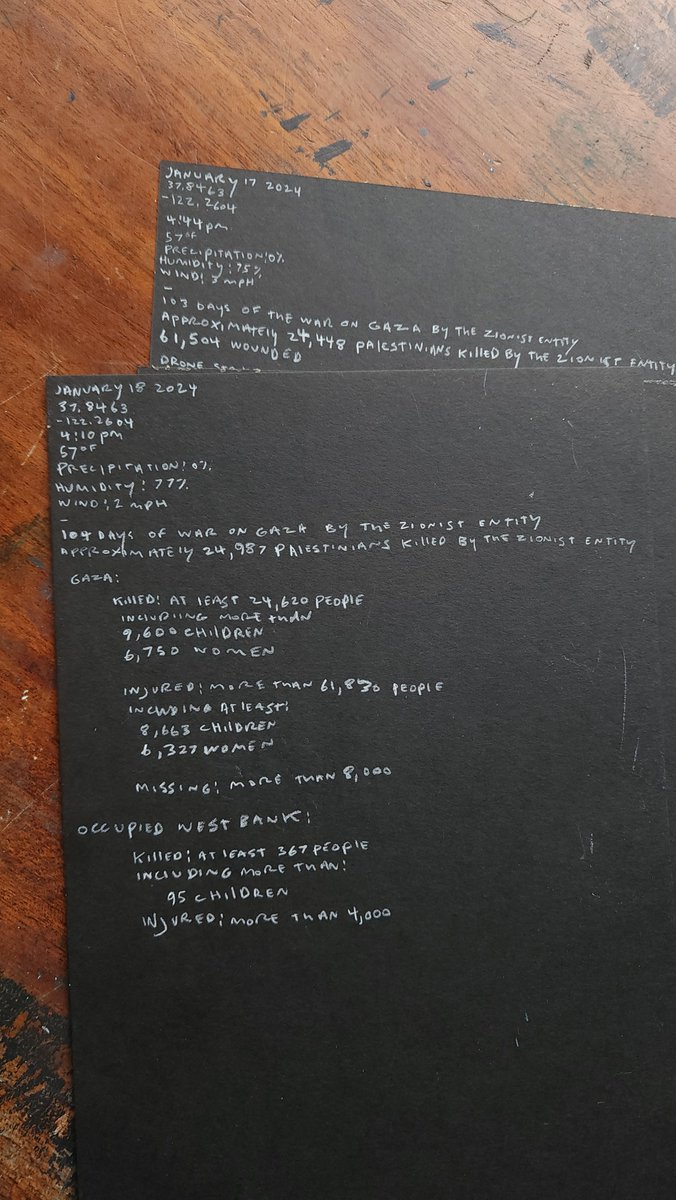 JANUARY 17 2024
37.8463
-122.2604
4:44pm
57°F
PRECIPITATION:0%
HUMIDITY:75%
WIND:3 mPH
-
103 DAYS OF THE WAR ON GAZA BY THE ZIONIST ENTITY
APPROXIMATELY 24,448 PALESTINIANS KILLED BY THE ZIONIST ENTITY
61,504 WOUNDED
DRONE
JANUARY 18 2024
37.8463
-122.2604
4:10pm
57°F
PRECIPITATION:0%
HUMIDITY:77%
WIND:2 mPH
-
104 DAYS OF WAR ON GAZA BY THE ZIONIST ENTITY
APPROXIMATELY 24,987 PALESTINIANS KILLED BY THE ZIONIST ENTITY
GAZA:
KILLED: AT LEAST 24,620 PEOPLE
INCLUDIING MORE THAN
9,600 CHILDREN
6,750 WOMEN
INJURED: MORE THAN 61,830 PEOPLE
INCLUDING AT LEAST:
8,663 CHILDREN
6,327 WOMEN
MISSING: MORE THAN 8,000
OCCUPIED WEST BANK:
KILLED: AT LEAST 367 PEOPLE
INCLUDING MORE THAN:
95 CHILDREN
INJURED: MORE THAN 4,000